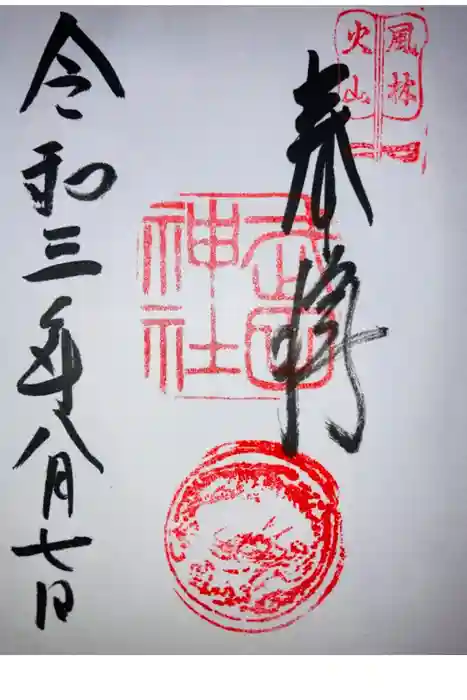 風林
火山
奉拝
武田
神社
令和三年八月七日